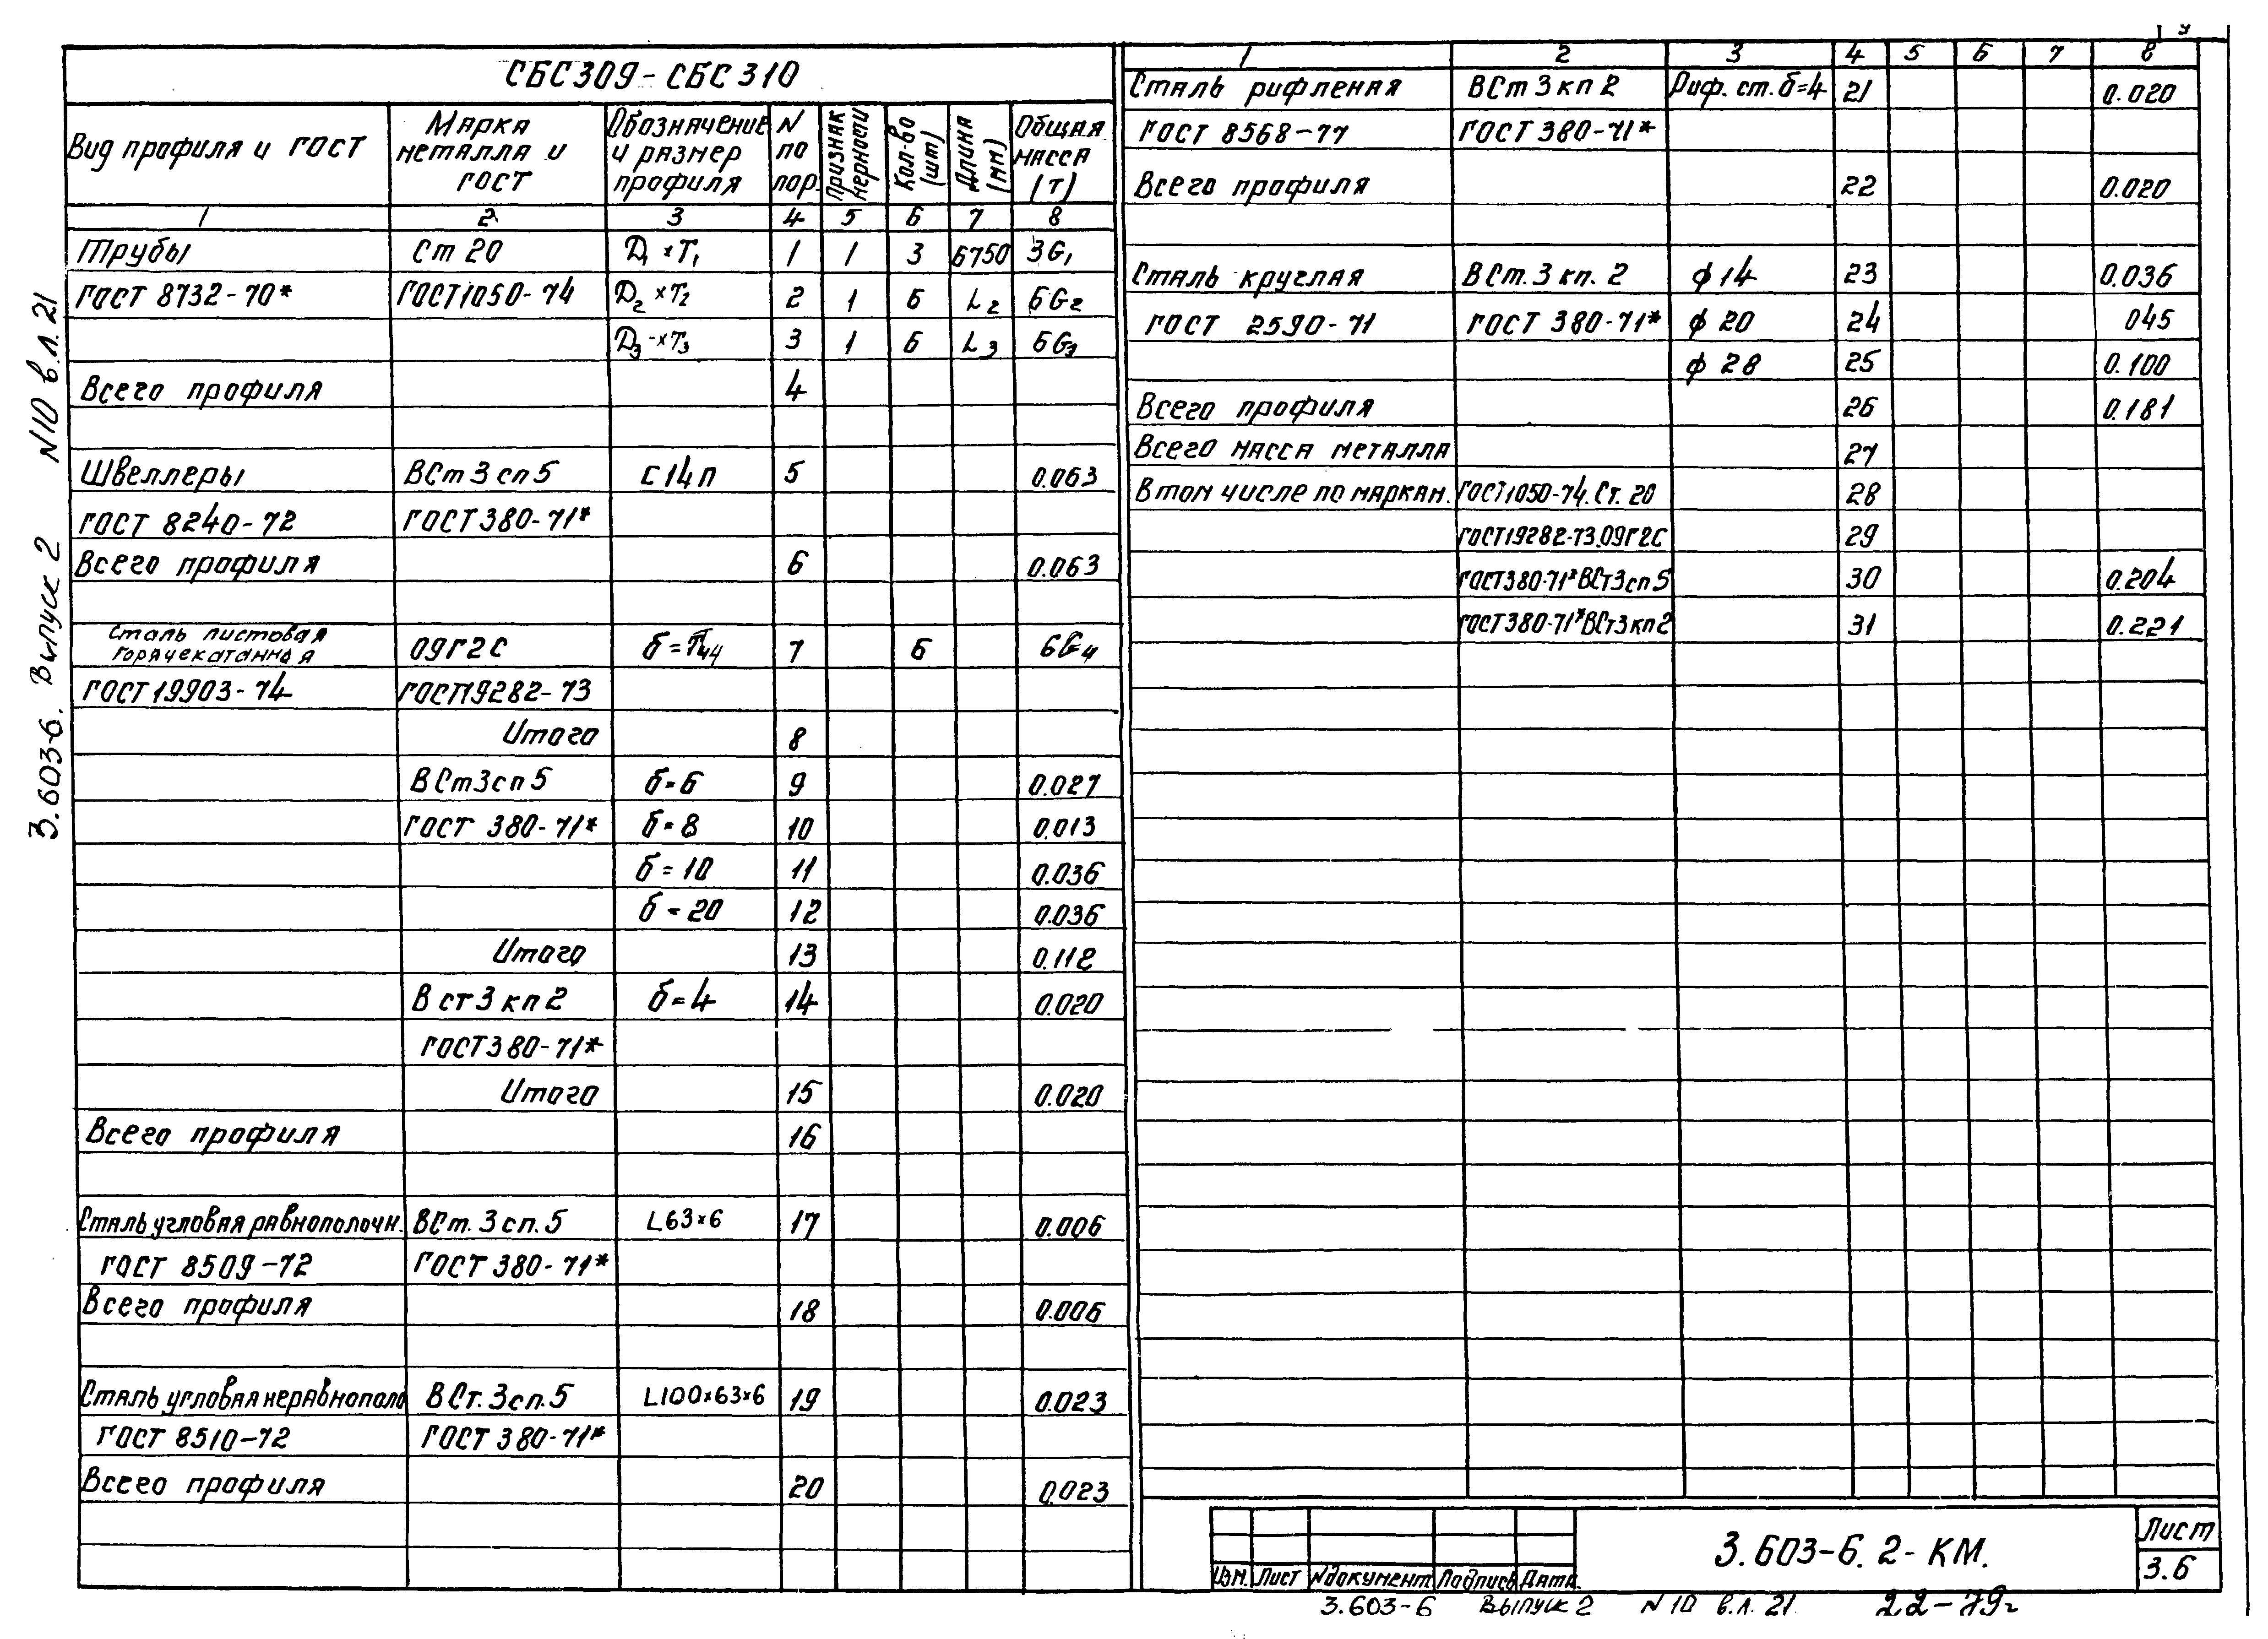 СБС309-СБС310
Вид профиля и ГОСТ | Марка металла и ГОСТ | Обозначение и размер профиля | N по пор. | Признак мерности | Кол-во (шт) | Длина (мм) | Общая масса (т)
1 2 3 4 5 6 7 8
Трубы Ст 20 Д1 × Т1 1 1 3 6750 3G1
ГОСТ 8732-70* ГОСТ1050-74 Д2 × Т2 2 1 6 L2 6G2
Д3 × Т3 3 1 6 L3 6G3
Всего профиля 4
Швеллеры ВСт3сп5 С14п 5 0.063
ГОСТ 8240-72 ГОСТ380-71*
Всего профиля 6 0.063
Сталь листовая
горячекатанная 09Г2С 7 6 6G4
ГОСТ19903-74 ГОСТ19282-73
Итого 8
ВСт3сп5 δ=6 9 0.027
ГОСТ 380-71* δ=8 10 0.013
δ=10 11 0.036
δ=20 12 0.036
Итого 13 0.112
Вст3кп2 δ=4 14 0.020
ГОСТ380-71*
Итого 15 0.020
Всего профиля 16
Сталь угловая равнополочн. ВСт.3сп.5 L63×6 17 0.006
ГОСТ 8509-72 ГОСТ 380-71*
Всего профиля 18 0.006
Сталь угловая неравнополо ВСт.3сп.5 L100×63×6 19 0.023
ГОСТ 8510-72 ГОСТ 380-71*
Всего профиля 20 0.023
9
1 2 3 4 5 6 7 8
Сталь рифленая ВСт3кп2 Риф. ст. δ=4 21 0.020
ГОСТ 8568-77 ГОСТ380-71*
Всего профиля 22 0.020
Сталь круглая ВСт.3кп.2 ф14 23 0.036
ГОСТ 2590-71 ГОСТ 380-71* ф20 24 045
ф28 25 0.100
Всего профиля 26 0.181
Всего масса металла 27
В том числе по маркам. ГОСТ1050-74.Ст.20 28
ГОСТ19282-73.09Г2С 29
ГОСТ380-71*ВСт3сп5 30 0.204
ГОСТ380-71*ВСт3кп2 31 0.221
Изм. Лист №документ Подпись Дата
3.603-6.2-КМ.
Лист
3.6
3.603-6 Выпуск 2 N10 в.л.21 22-79г
3.603-6. Выпуск 2 N10 в.л.21